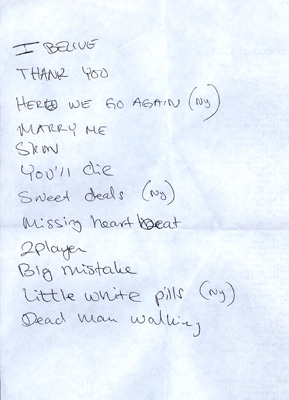 I BELIVE
THANK YOU
HERE WE GO AGAIN (Ny)
MARRY ME
SKIN
YOU'll die
Sweet deals (Ny)
Missing heart beat
2player
Big mistake
Little white pills (Ny)
Dead man walking